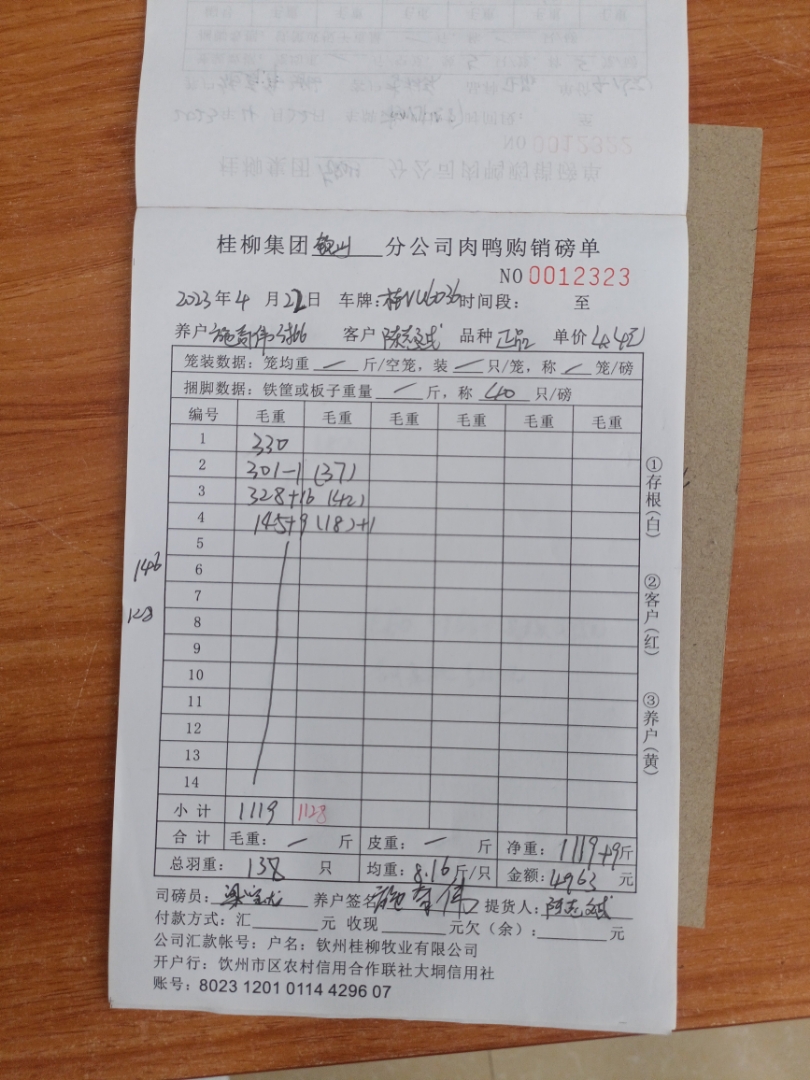 NO 0012322
桂柳集团 分公司肉鸭购销磅单
NO 0012323
2023年4月22日 车牌: 时间段: 至
养户 施 伟 客户 陈 品种 正品 单价 4.4元
笼装数据: 笼均重 / 斤/空笼, 装 / 只/笼, 称 / 笼/磅
捆脚数据: 铁筐或板子重量 / 斤, 称 40 只/磅
编号 毛重 毛重 毛重 毛重 毛重 毛重
1 330
2 301-1 (37)
3 328+16 (42)
4 145+9 (18)+1
5
6
146
7
8
128
9
10
11
12
13
14
小计 1119 1128
合计 毛重: / 斤 皮重: / 斤 净重: 1119+9斤
总羽重: 138 只 均重: 8.16斤/只 金额: 4963 元
司磅员: 梁 养户签名 施 伟 提货人: 陈
付款方式: 汇 元 收现 元欠(余): 元
公司汇款帐号: 户名: 钦州桂柳牧业有限公司
开户行: 钦州市区农村信用合作联社大垌信用社
账号: 8023 1201 0114 4296 07
①存根(白)
②客户(红)
③养户(黄)